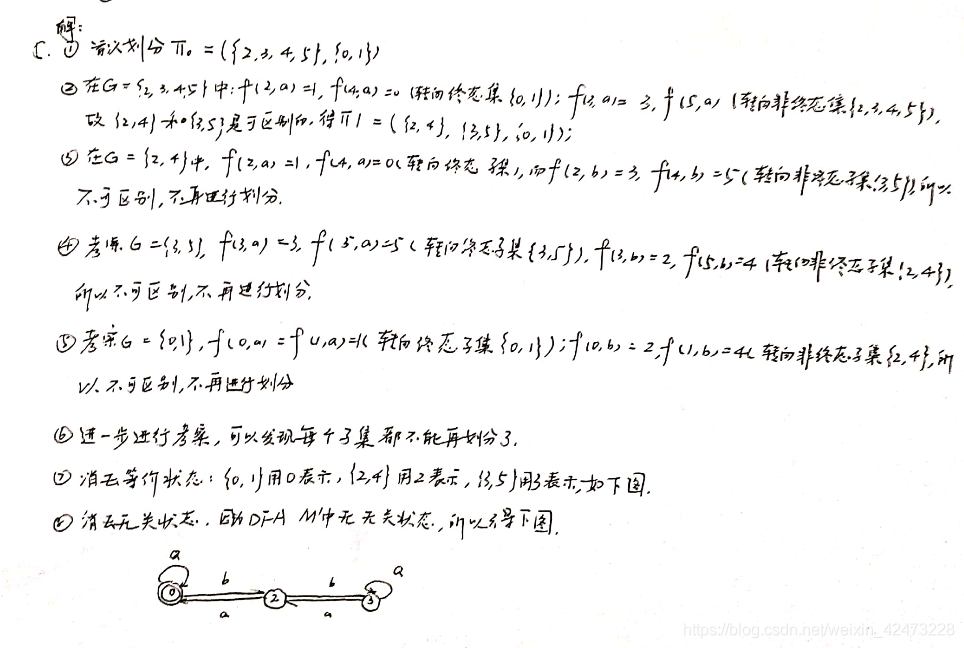 解:
C. ① 首次划分 Π₀ = ({2,3,4,5}, {0,1})
② 在G={2,3,4,5}中: f(2,a)=1, f(4,a)=0 (转向终态集{0,1}); f(3,a)=3, f(5,a) (转向非终态集{2,3,4,5}),
故{2,4}和{3,5}是可区别的,得Π1=({2,4},{3,5},{0,1});
③ 在G={2,4}中, f(2,a)=1, f(4,a)=0(转向终态子集),而f(2,b)=3, f(4,b)=5(转向非终态子集{3,5}),所以
不可区别,不再进行划分.
④ 考察G={3,5}, f(3,a)=3, f(5,a)=5(转向终态子集{3,5}), f(3,b)=2, f(5,b)=4(转向非终态子集{2,4}),
所以不可区别,不再进行划分.
⑤ 考察G={0,1}, f(0,a)=f(1,a)=1(转向终态子集{0,1}); f(0,b)=2, f(1,b)=4(转向非终态子集{2,4},所
以不可区别,不再进行划分
⑥ 进一步进行考察,可以发现每个子集都不能再划分了.
⑦ 消去等价状态: {0,1}用0表示, {2,4}用2表示, {3,5}用3表示,如下图.
⑧ 消去无关状态. 因为DFA M'中无无关状态,所以得下图.
a
a
b
b
0
2
3
a
a
https://blog.csdn.net/weixin_42473228